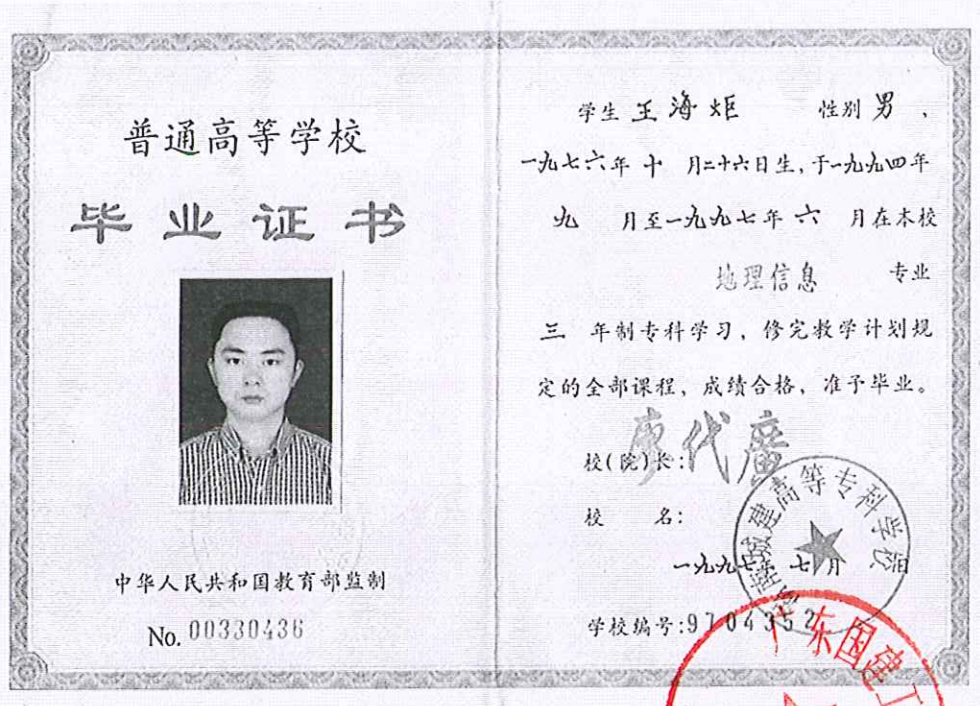 普通高等学校
毕业证书
中华人民共和国教育部监制
No. 00330436
学生 王海炬 性别 男 、
一九七六年 十 月二十六日生,于一九九四年
九 月至一九九七年 六 月在本校
地理信息 专业
三 年制专科学习，修完教学计划规
定的全部课程，成绩合格，准予毕业。
校(院)长:
校 名:
城建高等专科学校
一九九七年 七月 日
学校编号:9704352
广东国建工